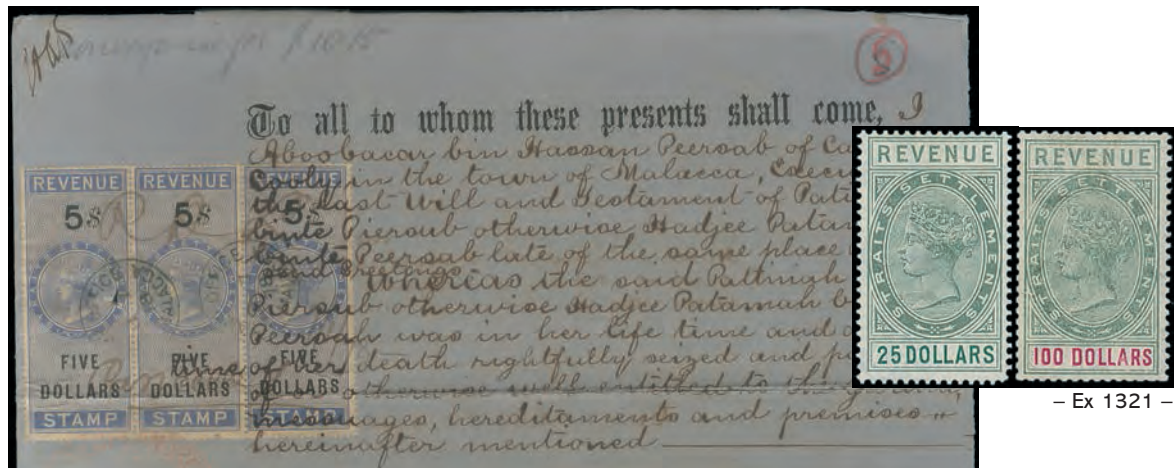 To all to whom these presents shall come, I
Aboobacar bin Hassan Peersab of
in the town of Malacca,
the Last Will and Testament of
binte Piersub otherwise Hadjee
binte Peersab late of the same place
send Greetings Whereas the said Pattmah
Piersub otherwise Hadjee Patamah
Peersah was in her life time and
time of her death rightfully seized and
of or otherwise well entitled to the
messuages, hereditaments and premises
hereinafter mentioned
REVENUE
5$
FIVE
DOLLARS
STAMP
REVENUE
5$
FIVE
DOLLARS
STAMP
REVENUE
5$
FIVE
DOLLARS
STAMP
REVENUE
STRAITS SETTLEMENTS
25 DOLLARS
REVENUE
STRAITS SETTLEMENTS
100 DOLLARS
– Ex 1321 –